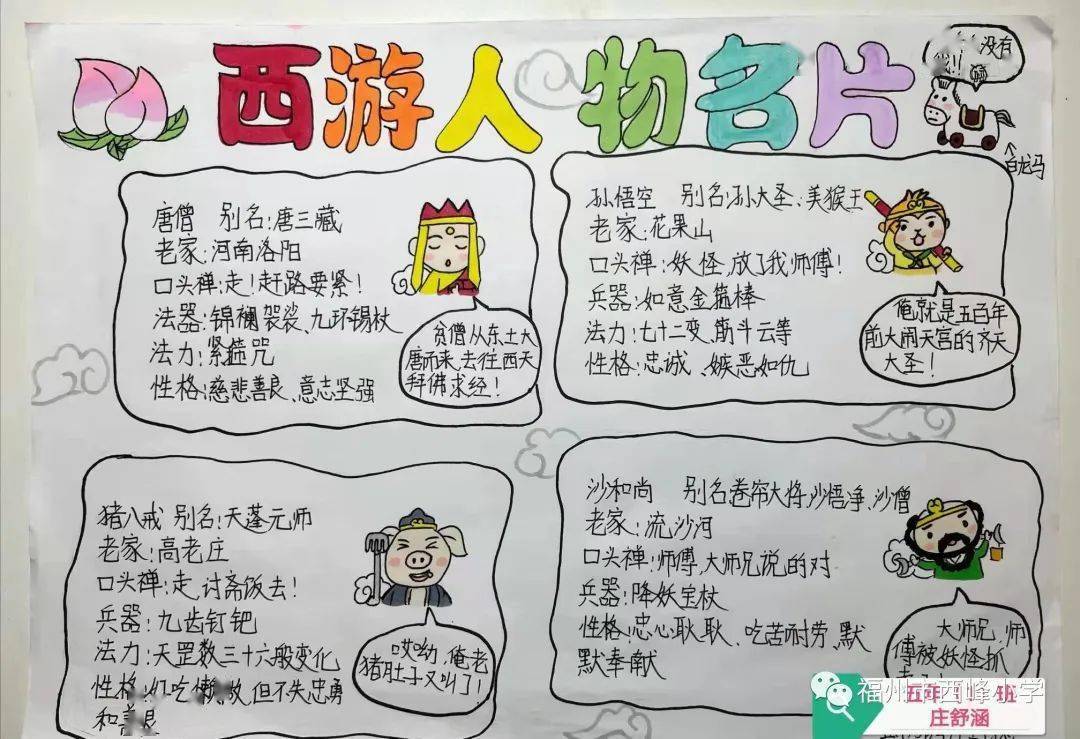 西游人物名片
没有
白龙马
唐僧 别名:唐三藏
老家:河南洛阳
口头禅:走!赶路要紧!
法器:锦襕袈裟、九环锡杖
法力:紧箍咒
性格:慈悲善良、意志坚强
贫僧从东土大
唐而来,去往西天
拜佛求经!
孙悟空 别名:孙大圣、美猴王
老家:花果山
口头禅:妖怪,放了我师傅!
兵器:如意金箍棒
法力:七十二变、筋斗云等
性格:忠诚、嫉恶如仇
俺就是五百年
前大闹天宫的齐天
大圣!
猪八戒 别名:天蓬元师
老家:高老庄
口头禅:走,讨斋饭去!
兵器:九齿钉钯
法力:天罡数三十六般变化
性格:好吃懒做,但不失忠勇
和善良
哎呦,俺老
猪肚子又叫了!
沙和尚 别名:卷帘大将,沙悟净,沙僧
老家:流沙河
口头禅:师傅,大师兄说的对
兵器:降妖宝杖
性格:忠心耿耿、吃苦耐劳,默
默奉献
大师兄,师
傅被妖怪抓
福州 西峰小学
五年 班
庄舒涵